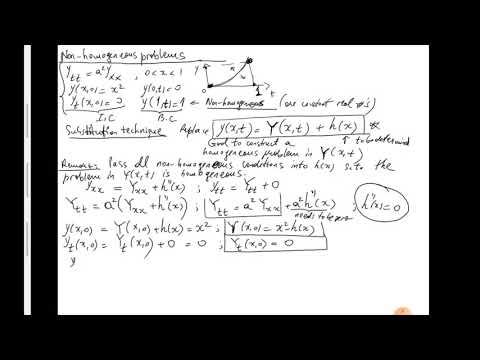 Non-homogeneous problems
y_tt = a²y_xx , 0<x<1
y(x,0) = x² y(0,t)=0
y_t(x,0) = 0 y(1,t)=1 ← Non-homogeneous (are constant real #'s)
I.C B.C
y 1 t
Substitution technique Replace y(x,t) = Y(x,t) + h(x) *
Goal to construct a ↑ to be determined
homogeneous problem in Y(x,t)
Remark: Pass all non-homogeneous conditions into h(x) s.t. the
problem in Y(x,t) is homogeneous.
y_xx = Y_xx + h''(x) ; y_tt = Y_tt + 0
Y_tt = a²(Y_xx + h''(x)) ; Y_tt = a² Y_xx + a² h''(x) ; h''(x) = 0
needs to be zero
y(x,0) = Y(x,0) + h(x) = x² ; Y(x,0) = x² - h(x)
y_t(x,0) = Y_t(x,0) + 0 = 0 ; Y_t(x,0) = 0
y